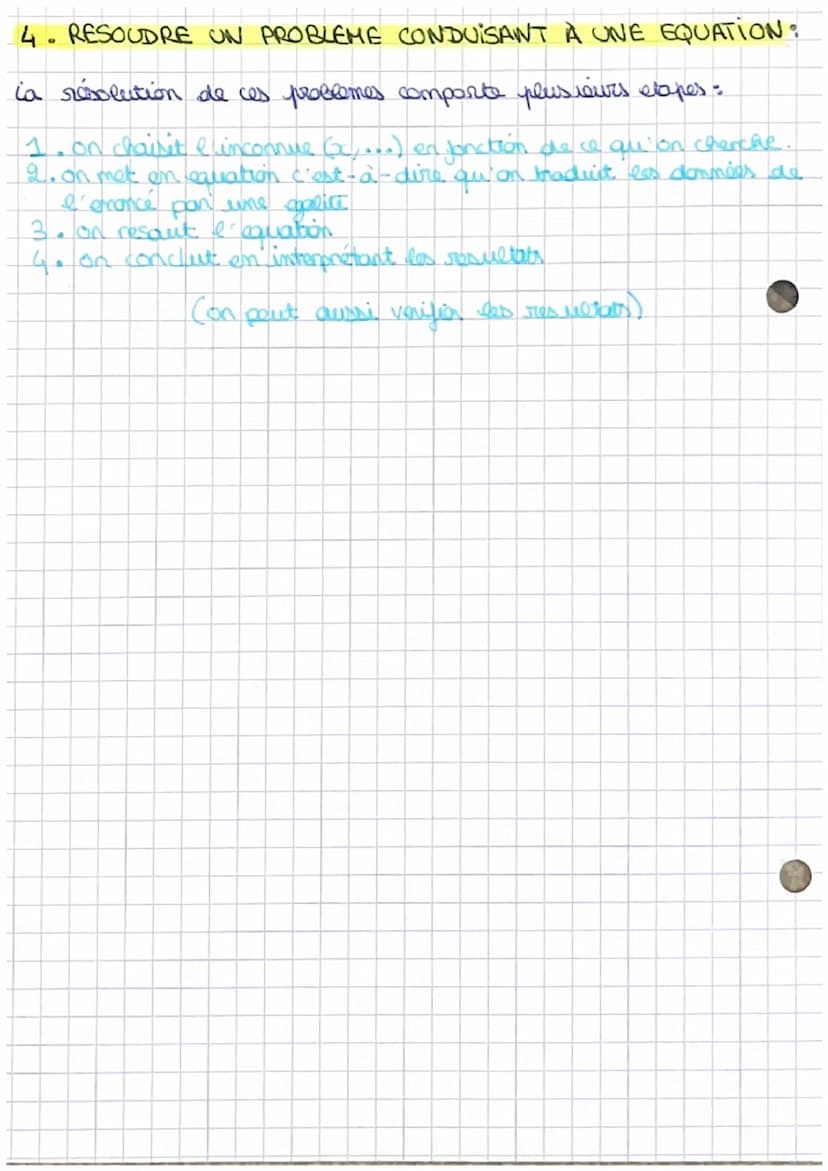 4. RESOUDRE UN PROBLEME CONDUISANT À UNE EQUATION:
La résolution de ces problemes comporte plusieurs etapes:
1. on choisit l'inconnue (x,...) en fonction de ce qu'on cherche.
2. on met en equation c'est-à-dire qu'on traduit les données de
l'enoncé par une egalité
3. on resout l'equation
4. on conclut en interprétant les resultats
(on peut aussi verifier les resultats)